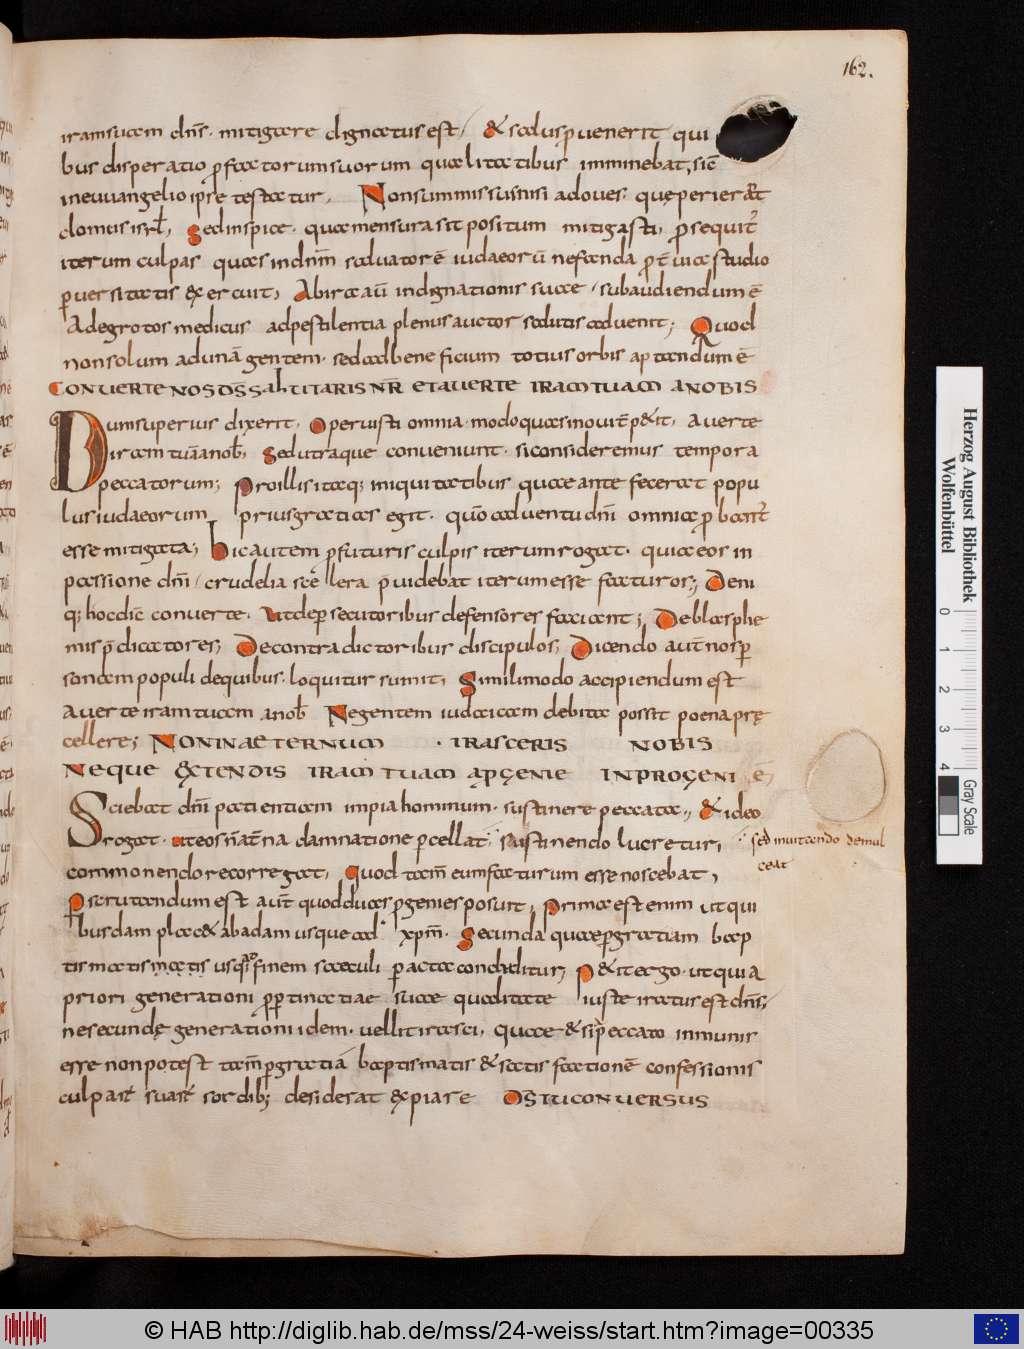 162.
iram suam dn̄s· mitigare dignatus est, & saluspuenerit qui
bus disperatio pfactorum suorum qualitatibus imminebat, sic̄
in euuangelio ipse testatur, Non sum missus nisi ad oues· quę perierāt
domus isrl̄, Sed inspice· quae mensura sit positum mitigasti, psequit̄
iterum culpas quas in dn̄m saluatorē iudaeorū nefanda p̄ studio
puersitatis exercuit, Abira aū indignationis suae, subaudiendum ē
Ad egrotos medicus ad pestilentia plenus auctor salutis aduenit; Quod
non solum ad unā gentem· sed ad beneficium totius orbis aptandum ē
CONUERTE NOS DS̄ SALUTARIS NR̄ ET AUERTE IRAM TUAM A NOBIS
Dum superius dixerit, Operuisti omnia· modo quasi nouit̄ p&it, Auerte
iram tuā a nob̄, Sed utraque conueniunt· si consideremus tempora
peccatorum; Pro illis itaq; iniquitatibus quae ante fecerat popu
lus iudaeorum prius gratias egit· quō aduentu dn̄i omnia pbant̄
esse mitigata; Hic autem pfuturis culpis iterum rogat· quia eos in
passione dn̄i, crudelia scelera p̄uidebat iterum esse facturos; Deni
q; hoc dic̄ conuerte· Ut de psecutoribus defensores faciant; De blasphe
mis p̄dicatores; De contradictoribus discipulos; Dicendo aut̄ nos p
sonam populi de quibus· loquitur sumit, Simili modo accipiendum est
auerte iram tuam a nob̄ Ne gentem iudaicam debita possit poena prę
cellere; NON IN AETERNUM · IRASCERIS NOBIS
NEQUE EXTENDIS IRAM TUAM A PGENIE IN PROGENIĒ
Sciebat dn̄i patientiam impia hominum· sustinere peccata,, & ideo
rogat· ut eos n̄ aet̄na damnatione pcellat sustinendo lucretur,
sed inuitando demul
ceat
commonendo recorregat, Quod tam̄ eum facturum esse noscebat,
Pscrutandum est aut̄ quod duas pgenies posuit, Prima est enim ut qui
busdam plac& ab adam usque ad xpm̄· Secunda quae p gratiam bap
tismatis usq; in finem saeculi peracta concluditur, P&it ergo· ut quia
priori generationi p ptinatiae suae qualitate iuste iratus est dn̄s,
ne secundę generationi idem· uellit irasci, quae & si peccato inmunis
esse non potest tam̄ p gratiā baptismatis & satisfactionē confessionis
culpas suas sordib; desiderat expiare DS̄ TU CONUERSUS
Herzog August Bibliothek
Wolfenbüttel
0 1 2 3 4
Gray Scale
© HAB http://diglib.hab.de/mss/24-weiss/start.htm?image=00335